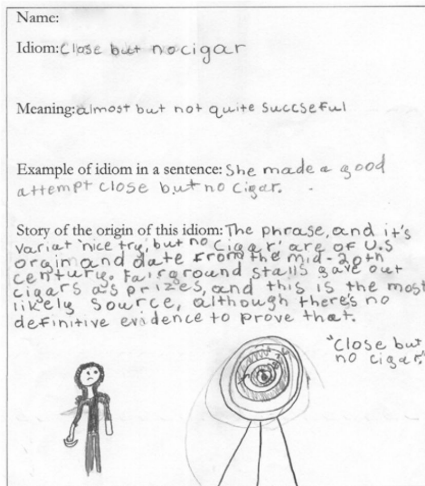 Name:
Idiom: Close but no cigar
Meaning: almost but not quite succseful
Example of idiom in a sentence: She made a good
attempt close but no cigar.
Story of the origin of this idiom: The phrase, and it's
variat 'nice try, but no cigar' are of U.S
orgin and date from the mid-20th
century. Fairground stalls gave out
cigars as prizes, and this is the most
likely source, although there's no
definitive evidence to prove that.
"Close but
no cigar."